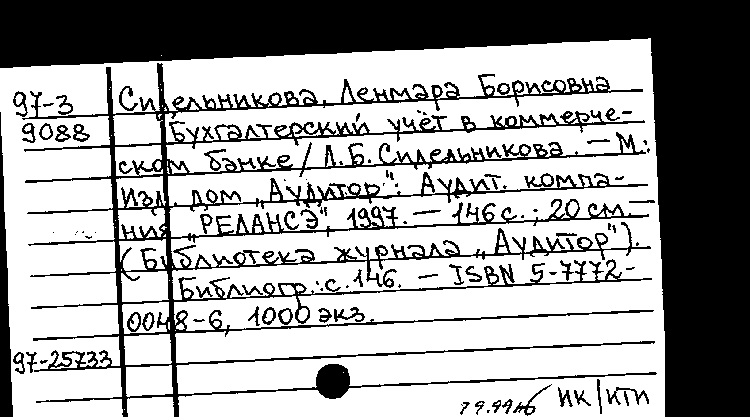 97-3 Сидельникова, Ленмара Борисовна
9088 Бухгалтерский учёт в коммерче-
ском банке / Л.Б. Сидельникова. — М.:
Изд. дом „Аудитор": Аудит. компа-
ния „РЕЛАНСЭ", 1997. — 146 с.; 20 см. —
(Библиотека журнала „Аудитор").
Библиогр.: с. 146. — ISBN 5-7772-
0048-6, 1000 экз.
97-25733
ИК/КТИ